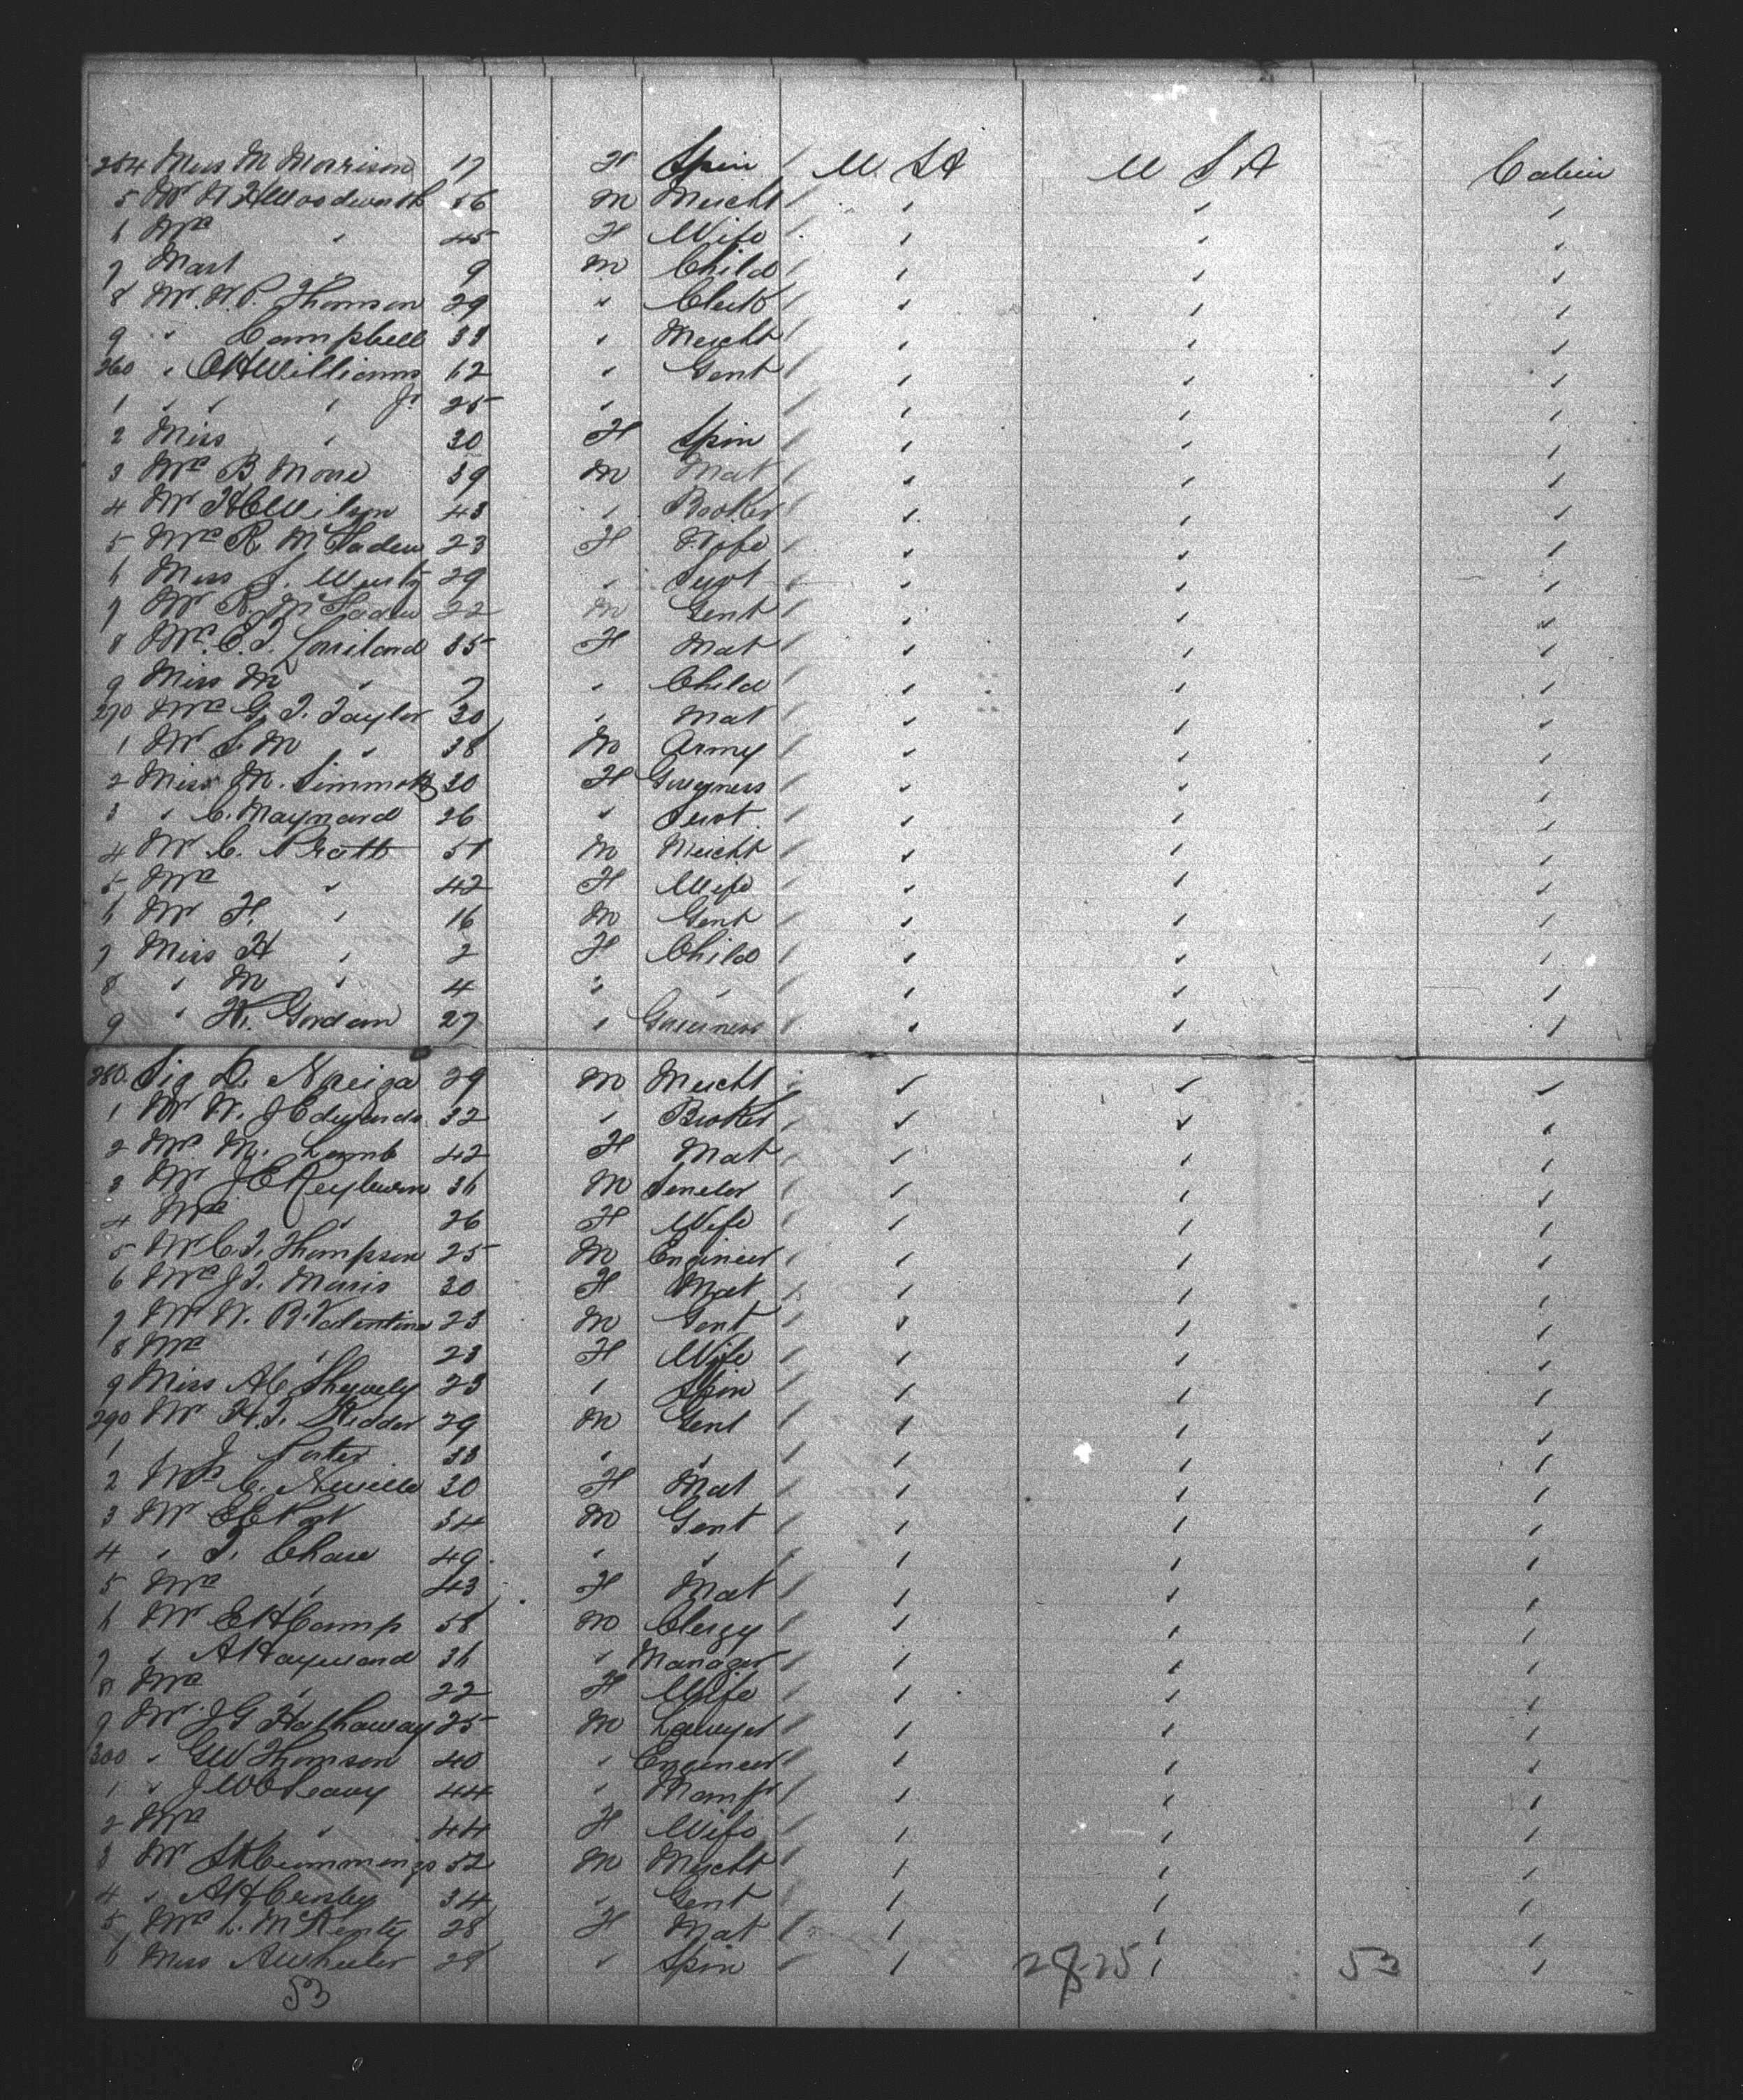 254 Miss M Morrison 17 F Spin U. S A U S A Cabin
5 Mr H Woodworth 56 M Mercht " " "
6 Mrs " 45 F Wife " " "
7 Mast " 9 M Child " " "
8 Mr W. P. Thomson 29 " Clerk " " "
9 " Campbell 33 " Mercht " " "
260 " C H Williams 62 " Gent " " "
1 " " " Jr 25 " " " " "
2 Miss " 30 F Spin " " "
3 Mrs B 39 M Mat " " "
4 Mr H C Wilson 43 " " " "
5 Mrs R McFaden 23 F Wife " " "
6 Miss J. 29 " Servt " " "
7 Mr R. McFaden 22 M Gent " " "
8 Mrs E. T. 35 F Mat " " "
9 Miss M " 7 " Child " " "
270 Mrs G. T. Taylor 30 " Mat " " "
1 Mr S. M " 38 M Army " " "
2 Miss M. 30 F " " "
3 " C. Maynard 26 " Servt " " "
4 Mr C. Pratt 51 M Mercht " " "
5 Mrs " 42 F Wife " " "
6 Mr F. " 16 M Gent " " "
7 Miss H " 2 F Child " " "
8 " M " 4 " " " " "
9 " H. Gordon 27 " Governess " " "
280. Sig D. 29 M Mercht " " "
1 Mr W. J Edwards 32 " Broker " " "
2 Mrs M. Lamb 42 F Mat " " "
3 Mr J E Reyburn 36 M Senator " " "
4 Mrs " 26 F Wife " " "
5 Mr C. T. Thompson 25 M Engineer " " "
6 Mrs J T. 30 F Mat " " "
7 Mr W. B. Valentine 23 M Gent " " "
8 Mrs " 23 F Wife " " "
9 Miss A C 23 " Spin " " "
290 Mr H. T. Kidder 29 M Gent " " "
1 " J Porter 33 " " " " "
2 Mrs C. Neville 30 F Mat " " "
3 Mr E E Post 34 M Gent " " "
4 " T. Chase 49 " " " " "
5 Mrs " 43 F Mat " " "
6 Mr E H Camp 58 M Clergy " " "
7 " A Hayward 36 " Manager " " "
8 Mrs " 22 F Wife " " "
9 Mr J G Hathaway 25 M Lawyer " " "
300 " G W Thomson 40 " Engineer " " "
1 " J W C Leavy 44 " Manfr " " "
2 Mrs " 44 F Wife " " "
3 Mr Cummings 52 M Mercht " " "
4 " A H Crosby 34 " Gent " " "
5 Mrs L. McKenty 28 F Mat " " "
6 Miss A Wheeler 28 " Spin " 28-25 " 53 "
53